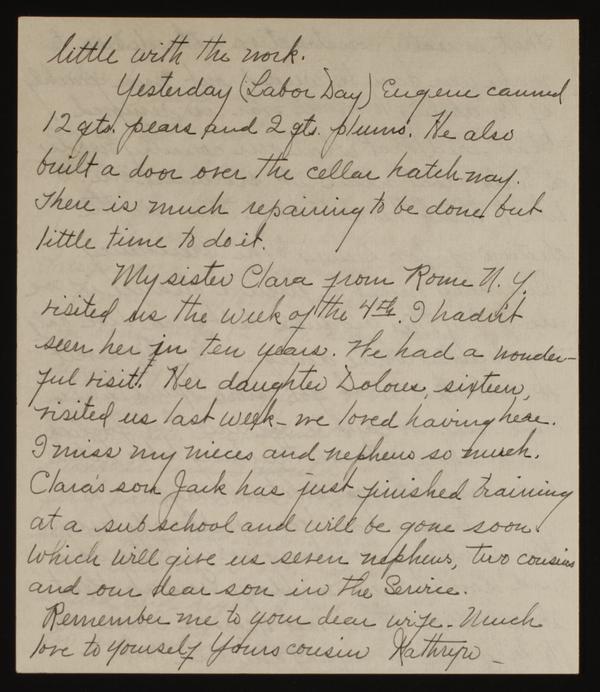 little with the work.
Yesterday (Labor Day) Eugene canned
12 qts. pears and 2 qts. plums. He also
built a door over the cellar hatchway.
There is much repairing to be done but
little time to do it.
My sister Clara from Rome N.Y.
visited us the week of the 4th. I hadn't
seen her in ten years. We had a wonder-
ful visit. Her daughter Dolores, sixteen,
visited us last week - we loved having her.
I miss my nieces and nephews so much.
Clara's son Jack has just finished training
at a sub school and will be gone soon.
Which will give us seven nephews, two cousins
and our dear son in the Service.
Remember me to your dear wife. Much
love to yourself Yours cousin Kathryn -